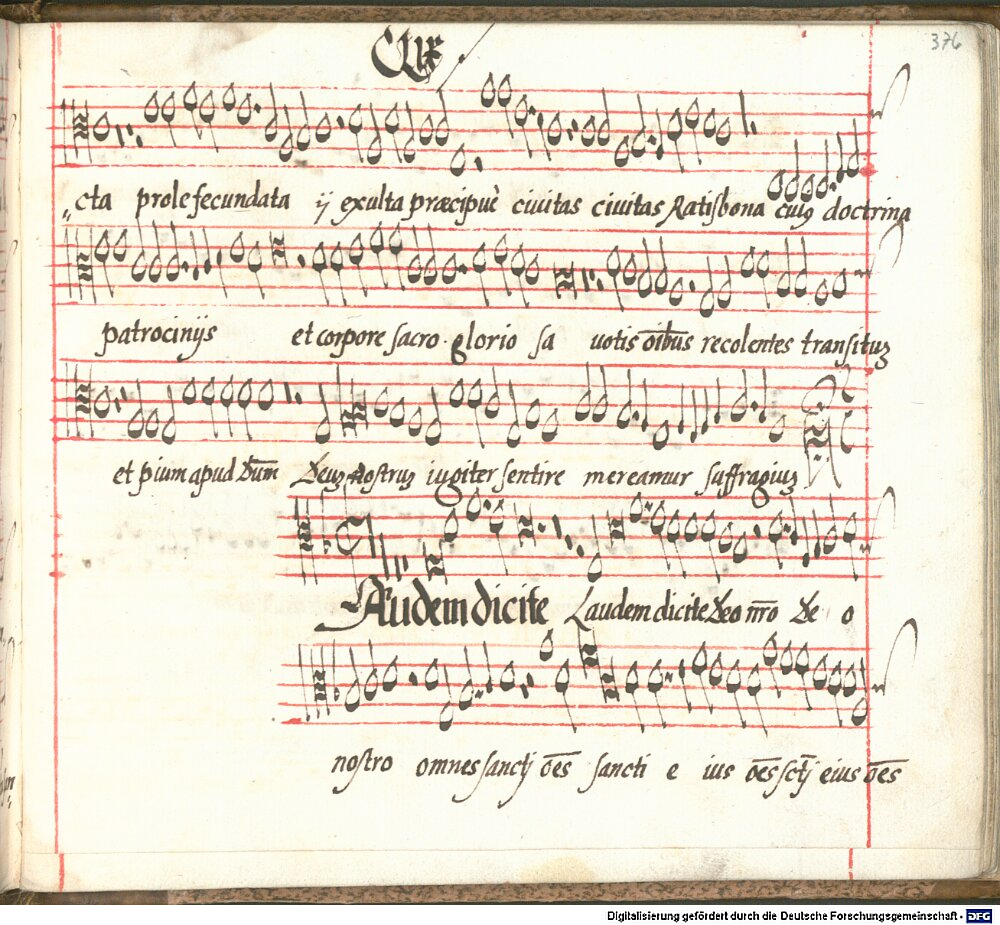 CLIX
376
cta prole fecundata ij exulta præcipuè ciuitas ciuitas Ratisbona cuiꝰ doctrina
patrocinijs et corpore sacro glorio sa uotis oībus recolentes transituꝫ
et pium apud Deum̄ Deuꝫ Nostruꝫ iugiter sentire mereamur suffragiuꝫ
LAudem dicite Laudem dicite Deo nr̄o De o
nostro omnes sanctj oēs sancti e ius oēs sctj̄ eius oēs
Digitalisierung gefördert durch die Deutsche Forschungsgemeinschaft - DFG